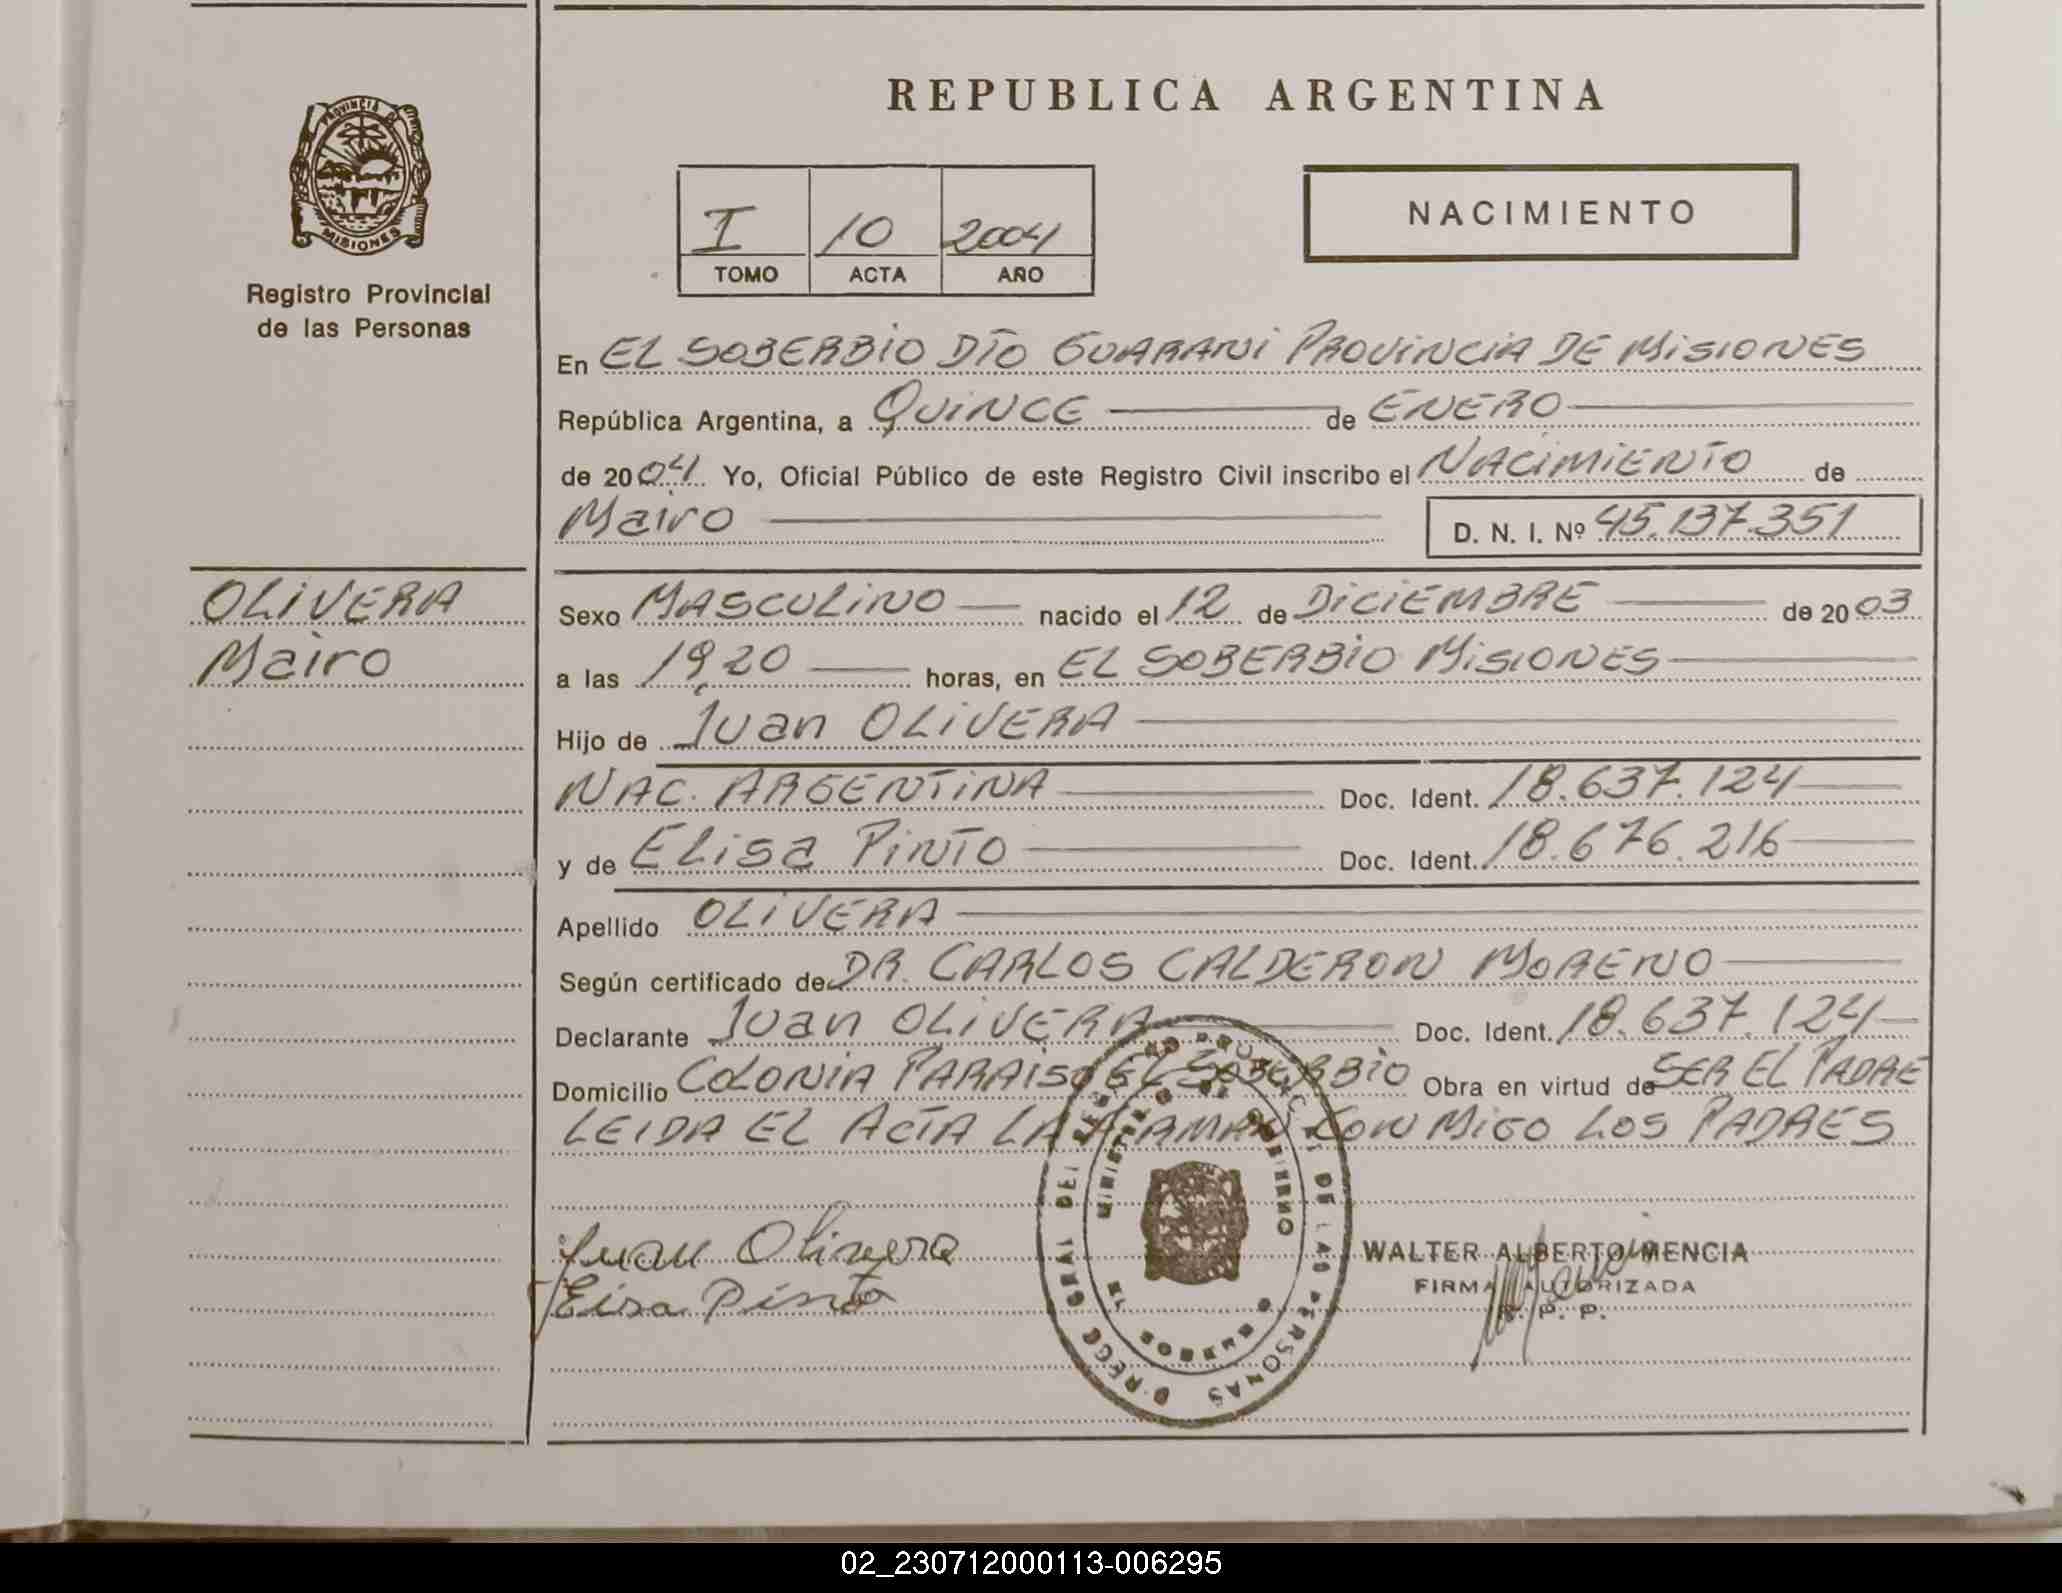 REPUBLICA ARGENTINA
PROVINCIA DE
MISIONES
Registro Provincial
de las Personas
I 10 2004
TOMO ACTA AÑO
NACIMIENTO
En EL SOBERBIO DTO GUARANI PROVINCIA DE MISIONES
República Argentina, a QUINCE de ENERO
de 2004. Yo, Oficial Público de este Registro Civil inscribo el NACIMIENTO de
Mairo D. N. I. Nº 45.137.351
OLIVERA
Mairo
Sexo MASCULINO nacido el 12 de DICIEMBRE de 2003
a las 19,20 horas, en EL SOBERBIO MISIONES
Hijo de Juan OLIVERA
NAC. ARGENTINA Doc. Ident. 18.637.124
y de ELisa PINTO Doc. Ident. 18.676.216
Apellido OLIVERA
Según certificado de DR. CARLOS CALDERON MORENO
Declarante Juan OLIVERA Doc. Ident. 18.637.124
Domicilio COLONIA PARAISO EL SOBERBIO Obra en virtud de SER EL PADRE
LEIDA EL ACTA LA FIRMAN CON MIGO LOS PADRES
Juan Olivera
Eisa Pinto
MINISTERIO DE GOBIERNO
WALTER ALBERTO MENCIA
FIRMA AUTORIZADA
R. P. P.
02_230712000113-006295